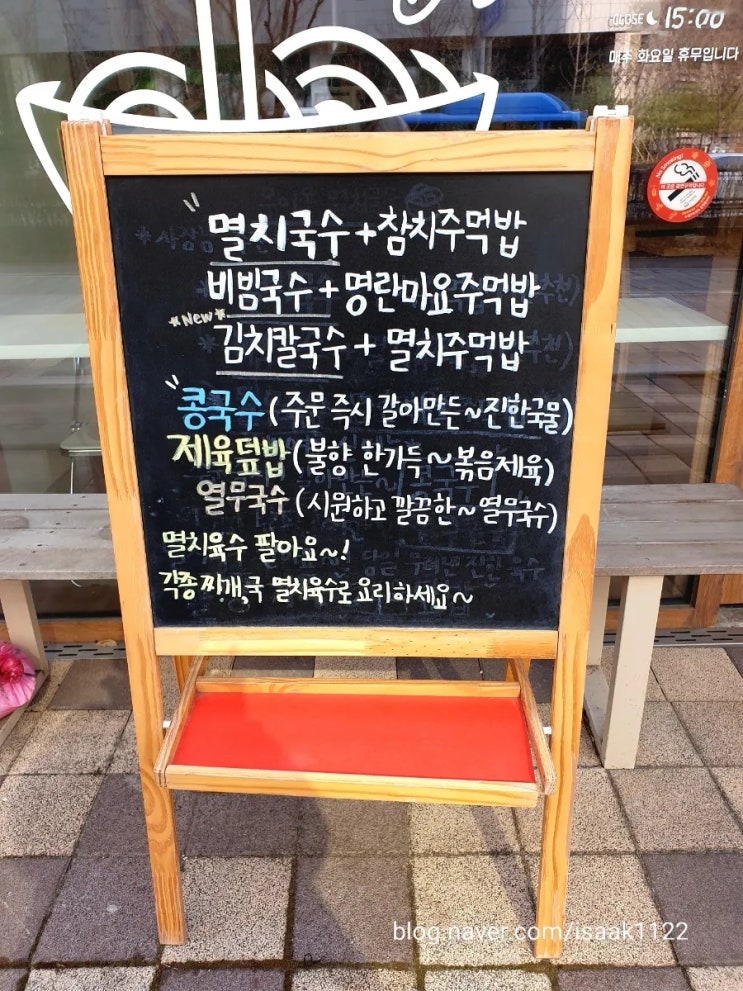 CLOSE 15:00
매주 화요일 휴무입니다
No Smoking!
멸치국수+참치주먹밥
비빔국수+명란마요주먹밥
*New*
김치칼국수+멸치주먹밥
콩국수(주문 즉시 갈아만든~진한국물)
제육덮밥(불향 한가득~볶음제육)
열무국수(시원하고 깔끔한~열무국수)
멸치육수 팔아요~!
각종찌개,국 멸치육수로 요리하세요~
blog.naver.com/isaak1122